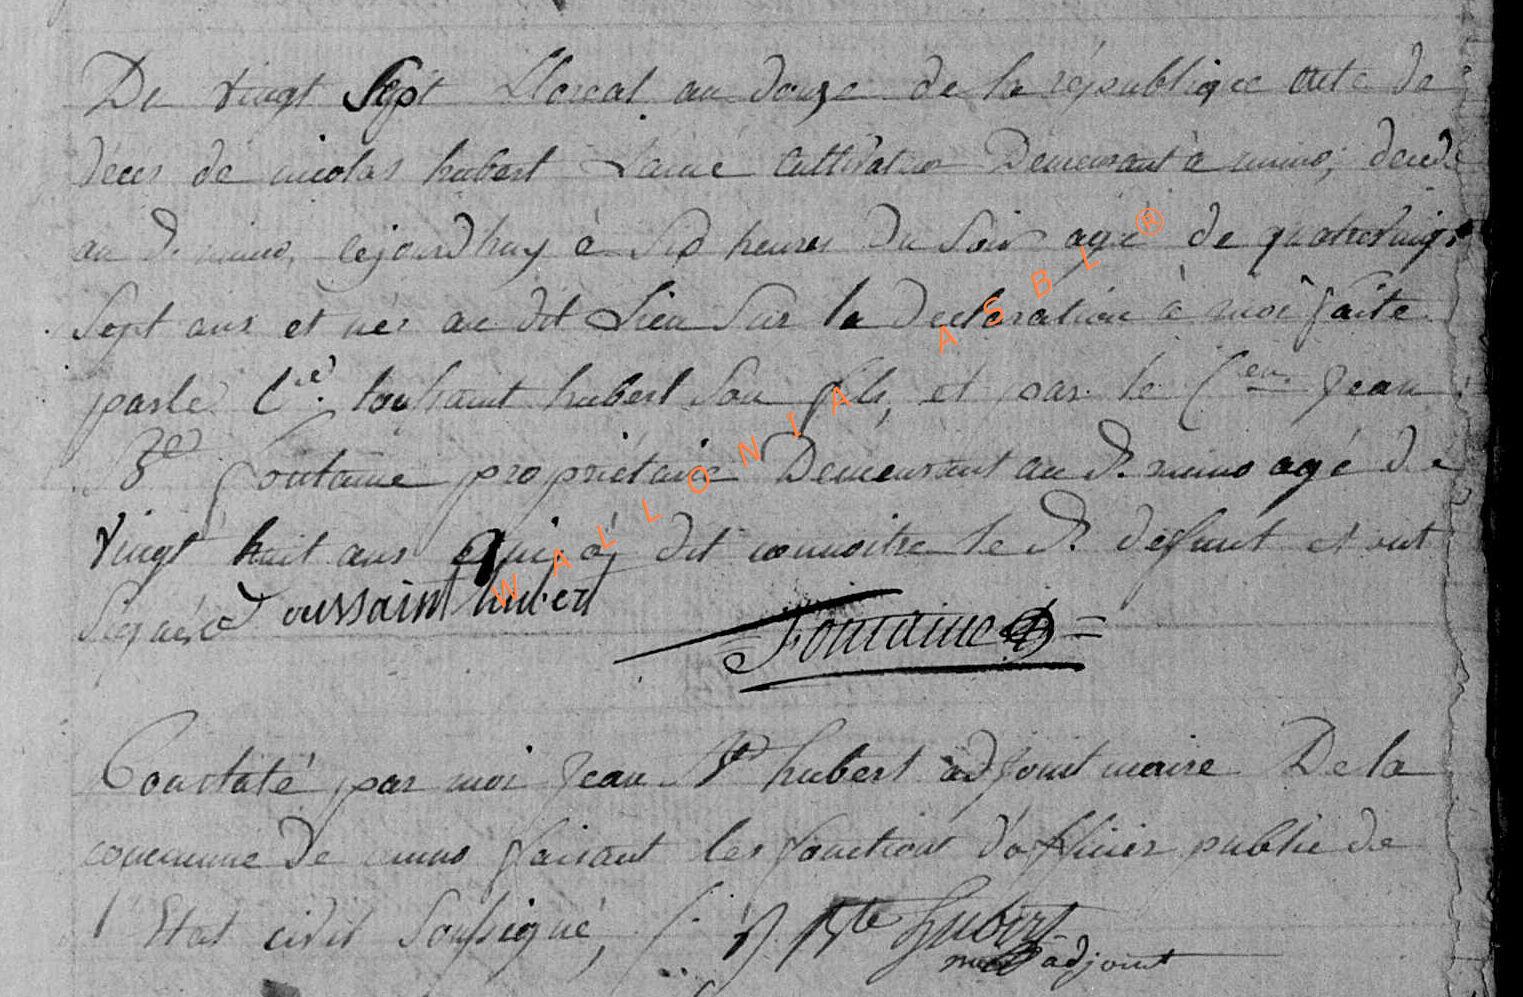 Du vingt Sept floreal an douze de la république acte de
décés de nicolas hubert L'ainé Cultivateur Demeurant à muno, décédé
au d. muno, cejourdhuy à Six heures du Soir agé de quatrevingt
Sept ans et nés au dit Lieu Sur la declaration à moi faite
parle C.en toussaint hubert Son fils, et par le C.en Jean
Bte fontaine propriétaire Demeurant au d. muno agé de
vingt huit ans qui a dit connoitre le d. defunt et ont
Signés toussaint hubert
Fontaine
Constaté par moi Jean Bte hubert adjoint maire De la
commune de muno faisant les fonctions d'officier public de
l'Etat civil Soussigné, J Bte hubert
adjoint
WALLONIA ASBL ®